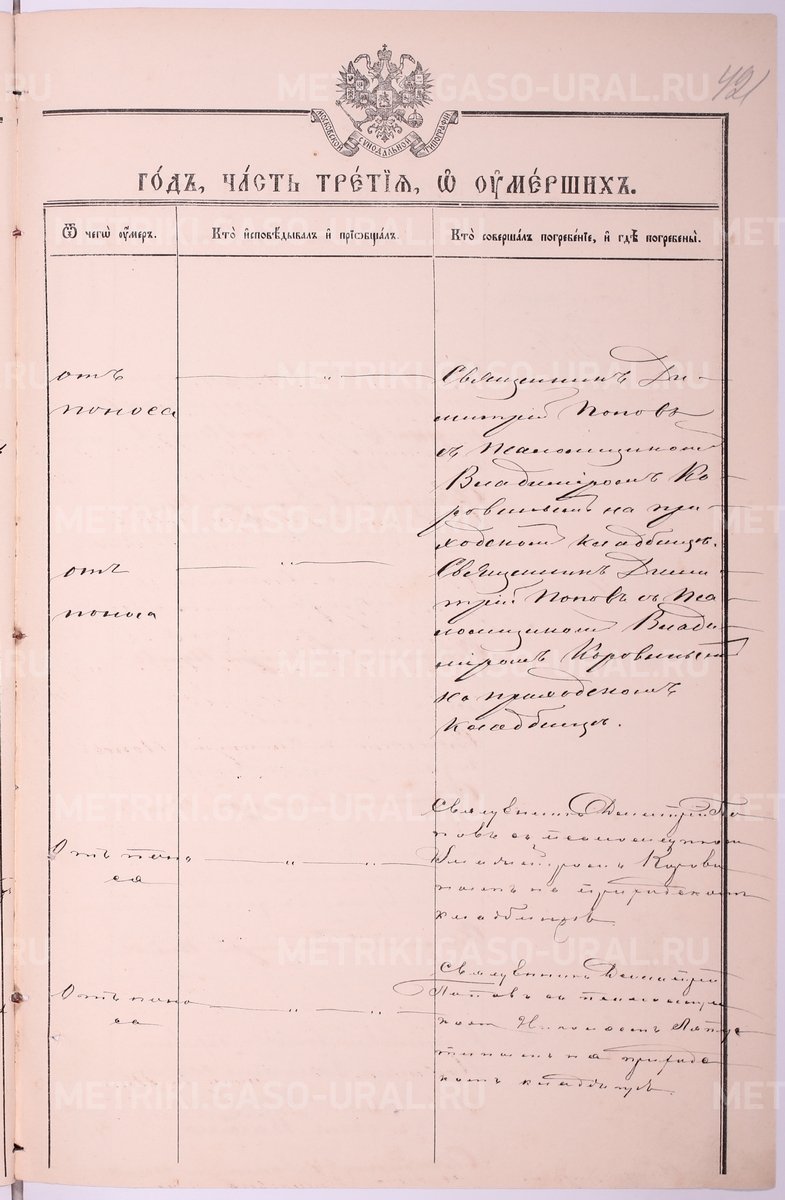 421
МОСКОВСКОЙ СѴНОДАЛЬНОЙ ТИПОГРАФІИ
ГО́ДЪ, ЧА́СТЬ ТРЕ́ТІЯ, Ѡ҆ ОУ҆МЕ́РШИХЪ.
Ѿ чегѡ̀ оу҆́меръ.
Кто̀ и҆сповѣ́дывалъ и҆ прїѡбща́лъ.
Кто̀ соверша́лъ погребе́нїе, и҆ гдѣ̀ погребены̀.
отъ
поноса
Священникъ Ди-
митрій Поповъ
съ Псаломщикомъ
Владиміромъ Ко-
ровинымъ на при-
ходскомъ кладбищѣ.
отъ
поноса
Священникъ Дими-
трій Поповъ съ Пса-
ломщикомъ Влади-
міромъ Коровинымъ
на приходскомъ
кладбищѣ.
Отъ поно
са
Священникъ Димитрій По
повъ съ псаломщикомъ
Владиміромъ Корови
нымъ на приходскомъ
кладбищѣ
Отъ поно
са
Священникъ Димитрій
Поповъ съ псаломщи
комъ
на приходс
комъ кладбищѣ.
METRIKI.GASO-URAL.RU